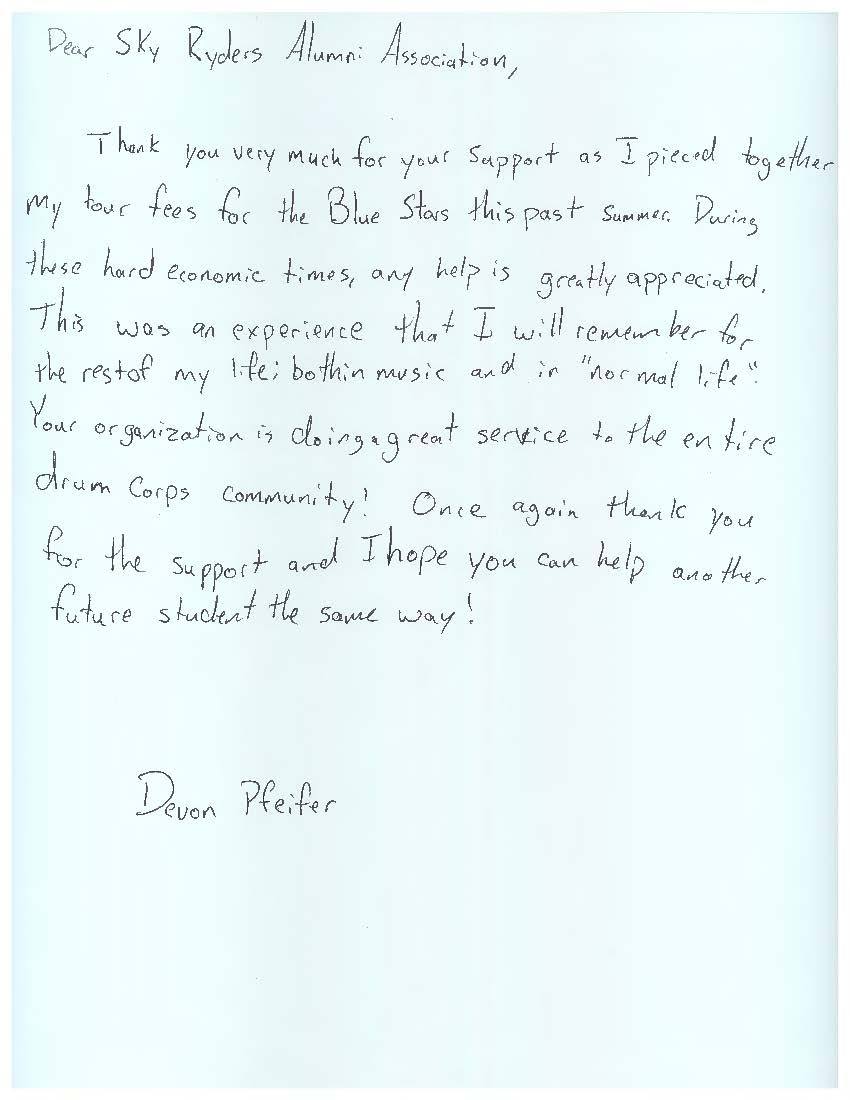 Dear Sky Ryders Alumni Association,
Thank you very much for your support as I pieced together
my tour fees for the Blue Stars this past summer. During
these hard economic times, any help is greatly appreciated.
This was an experience that I will remember for
the rest of my life; both in music and in "normal life".
Your organization is doing a great service to the entire
drum corps community! Once again thank you
for the support and I hope you can help another
future student the same way!
Devon Pfeifer